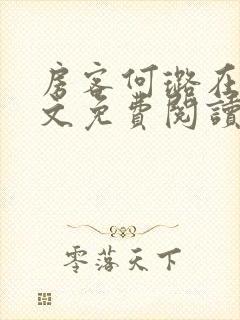 房客何璐在
文免費閱讀
零落天下